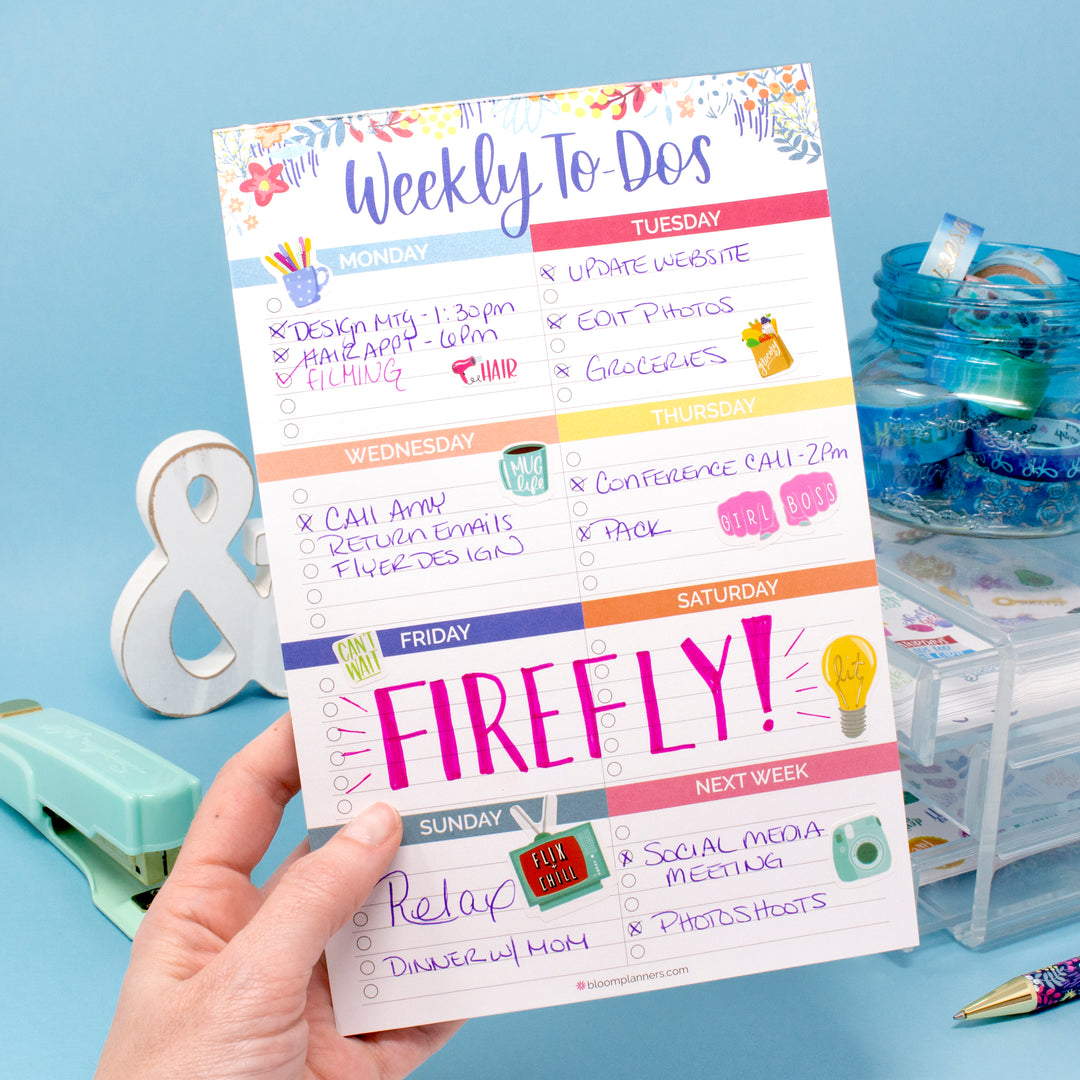 Weekly To-Dos
MONDAY
DESIGN MTG - 1:30pm
HAIR APPT - 6pm
FILMING
HAIR
TUESDAY
UPDATE WEBSITE
EDIT PHOTOS
GROCERIES
WEDNESDAY
I MUG
life
CALL AMY
RETURN EMAILS
FLYER DESIGN
THURSDAY
CONFERENCE CALL - 2pm
PACK
GIRL BOSS
FRIDAY
CAN'T
WAIT
SATURDAY
FIREFLY!
lit
SUNDAY
FLIX
CHILL
Relax
DINNER W/ MOM
NEXT WEEK
SOCIAL MEDIA
MEETING
PHOTOSHOOTS
bloomplanners.com